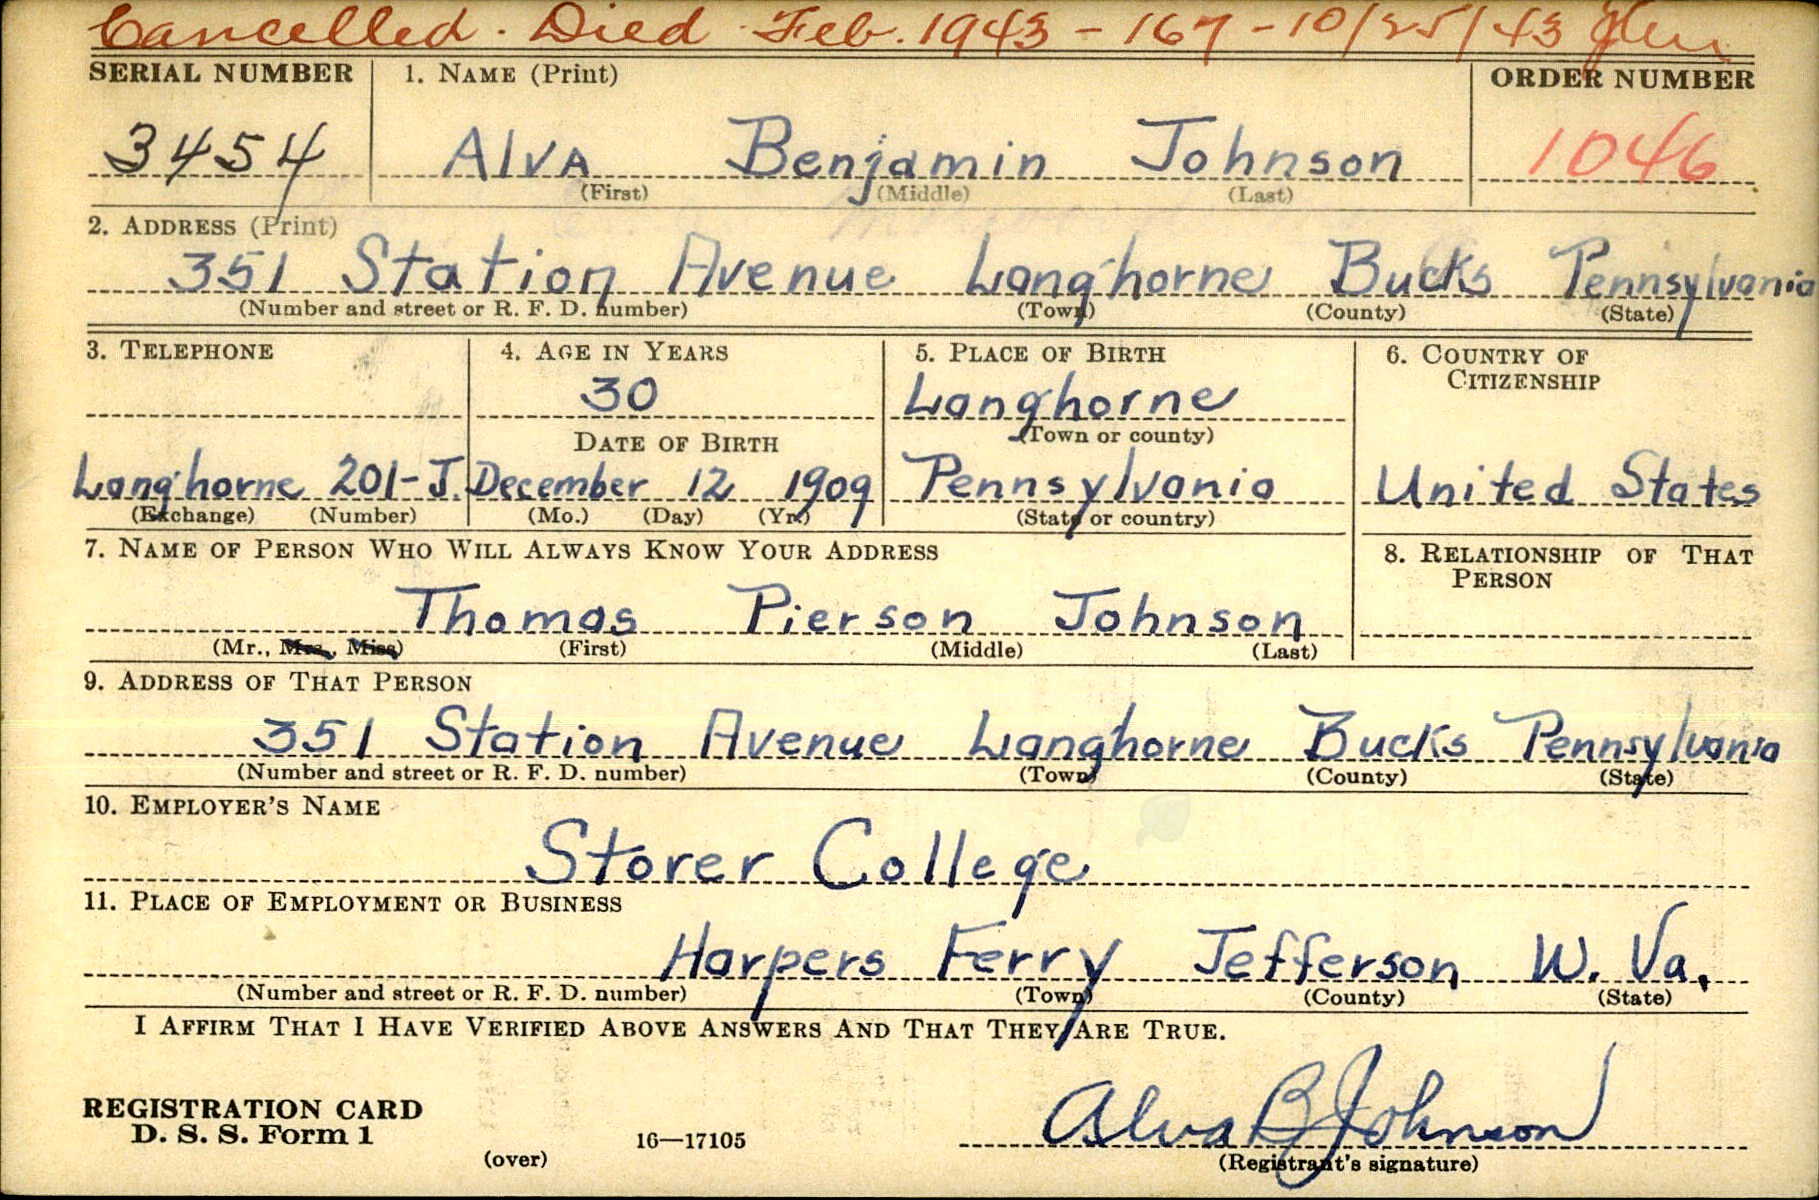 Cancelled. Died Feb. 1943 - 167 - 10/25/43
SERIAL NUMBER 1. NAME (Print) ORDER NUMBER
3454 Alva Benjamin Johnson 1046
(First) (Middle) (Last)
2. ADDRESS (Print)
351 Station Avenue Langhorne Bucks Pennsylvania
(Number and street or R. F. D. number) (Town) (County) (State)
3. TELEPHONE 4. AGE IN YEARS 5. PLACE OF BIRTH 6. COUNTRY OF
CITIZENSHIP
30 Langhorne
DATE OF BIRTH (Town or county)
Langhorne 201-J. December 12 1909 Pennsylvania United States
(Exchange) (Number) (Mo.) (Day) (Yr.) (State or country)
7. NAME OF PERSON WHO WILL ALWAYS KNOW YOUR ADDRESS 8. RELATIONSHIP OF THAT
PERSON
Thomas Pierson Johnson
(Mr., Mrs., Miss) (First) (Middle) (Last)
9. ADDRESS OF THAT PERSON
351 Station Avenue Langhorne Bucks Pennsylvania
(Number and street or R. F. D. number) (Town) (County) (State)
10. EMPLOYER'S NAME
Storer College
11. PLACE OF EMPLOYMENT OR BUSINESS
Harpers Ferry Jefferson W. Va.
(Number and street or R. F. D. number) (Town) (County) (State)
I AFFIRM THAT I HAVE VERIFIED ABOVE ANSWERS AND THAT THEY ARE TRUE.
REGISTRATION CARD
D. S. S. Form 1 16—17105 Alva B Johnson
(over) (Registrant's signature)